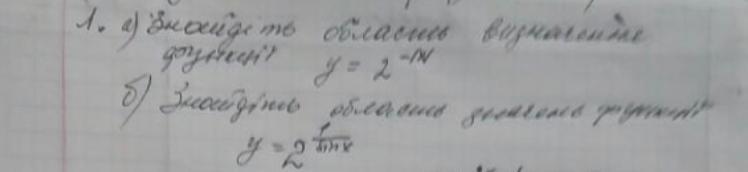 1. а) Знайдіть область визначення
функції y = 2^{-|x|}
б) Знайдіть область значень функції
y = 2^{\frac{1}{\sin x}}